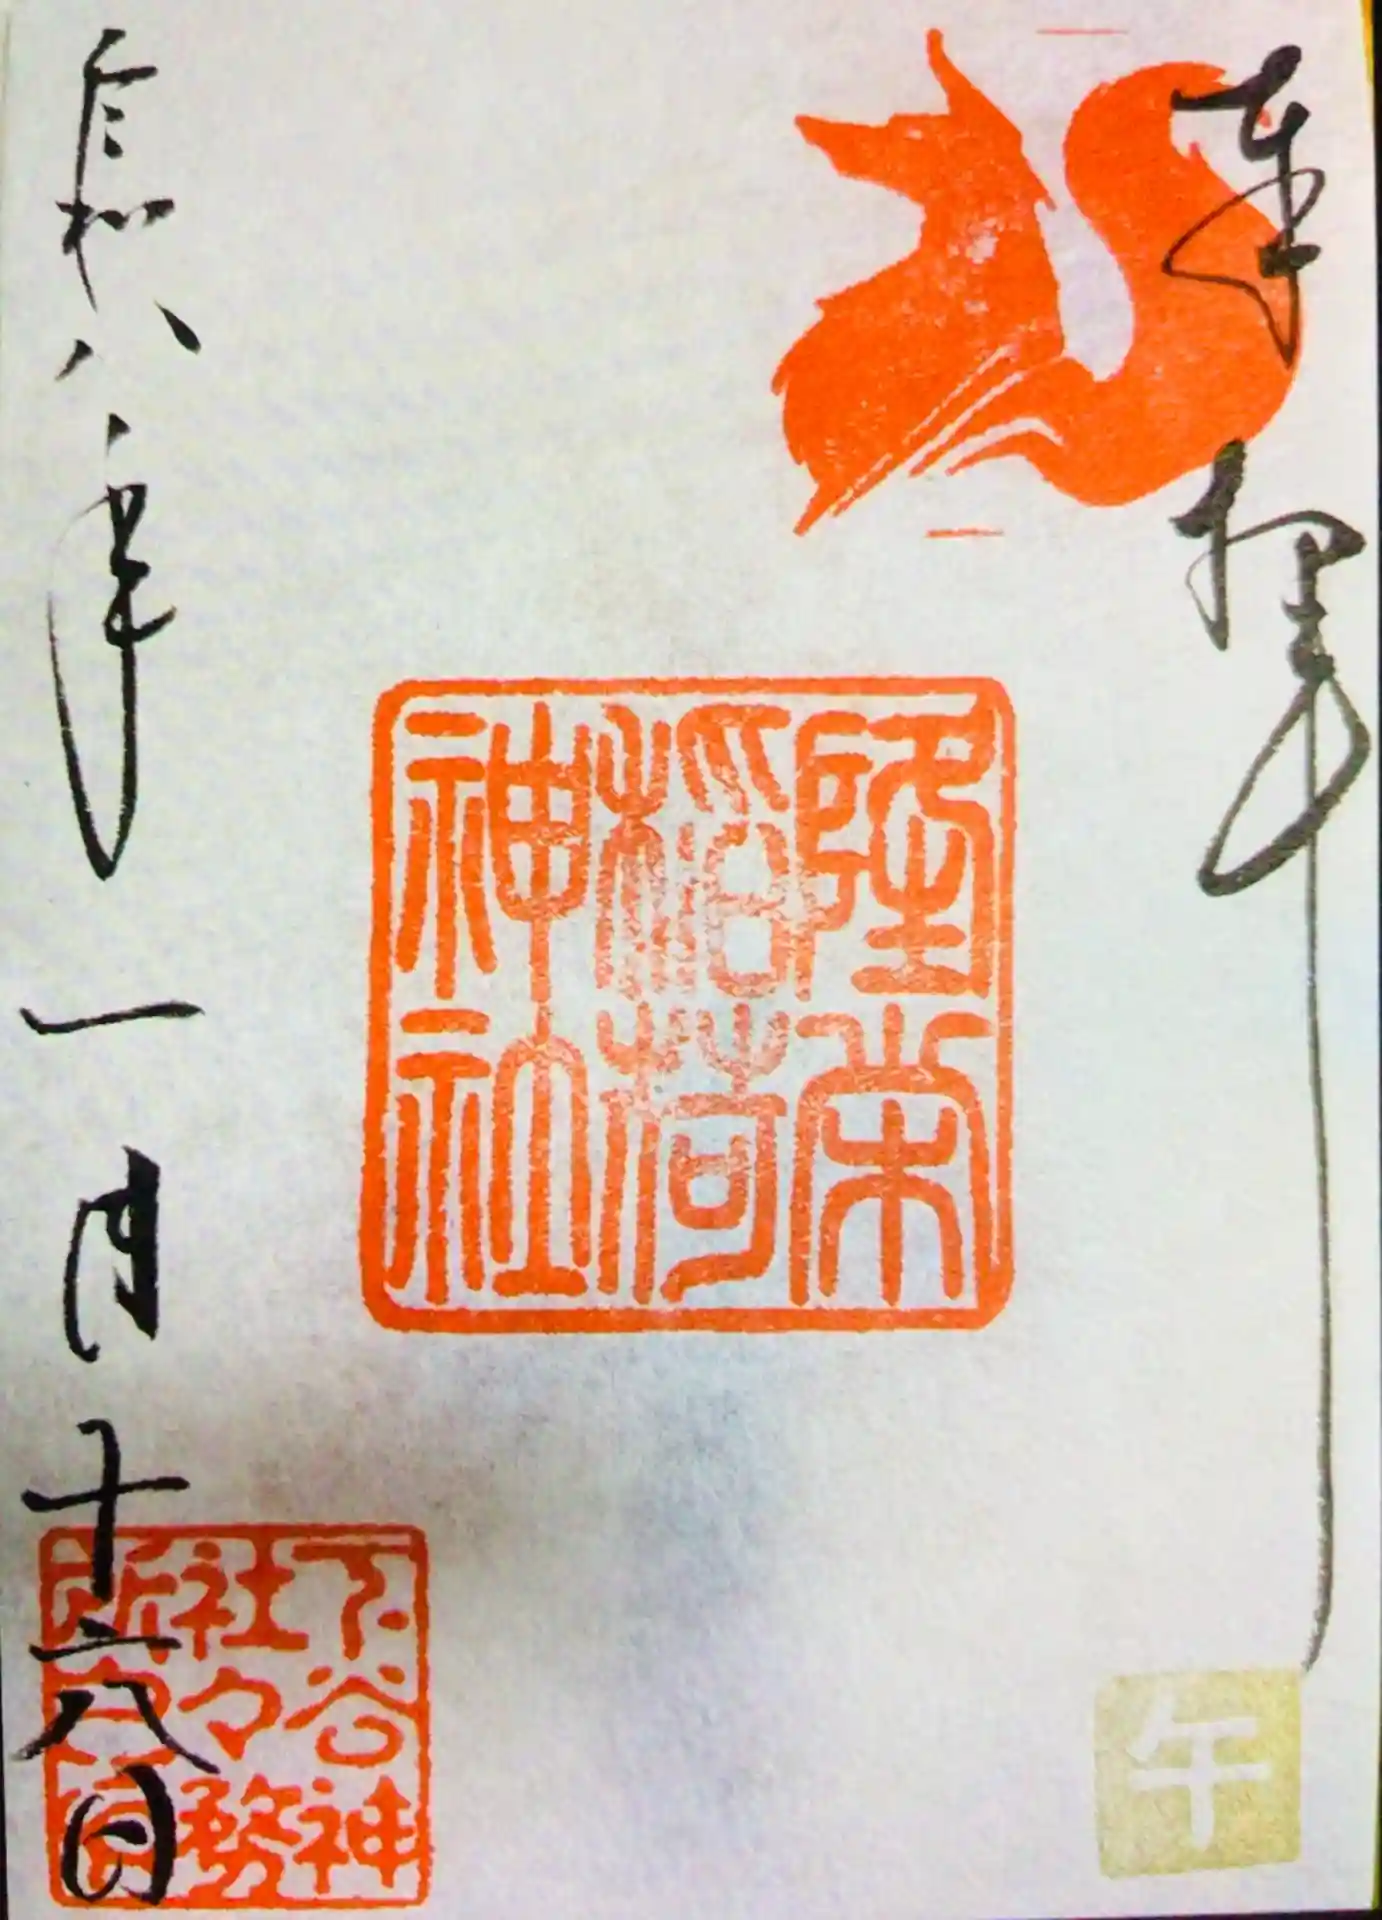 奉拝
隆栄
稲荷
神社
午
令和八年一月十六日
下谷神
社々務
所